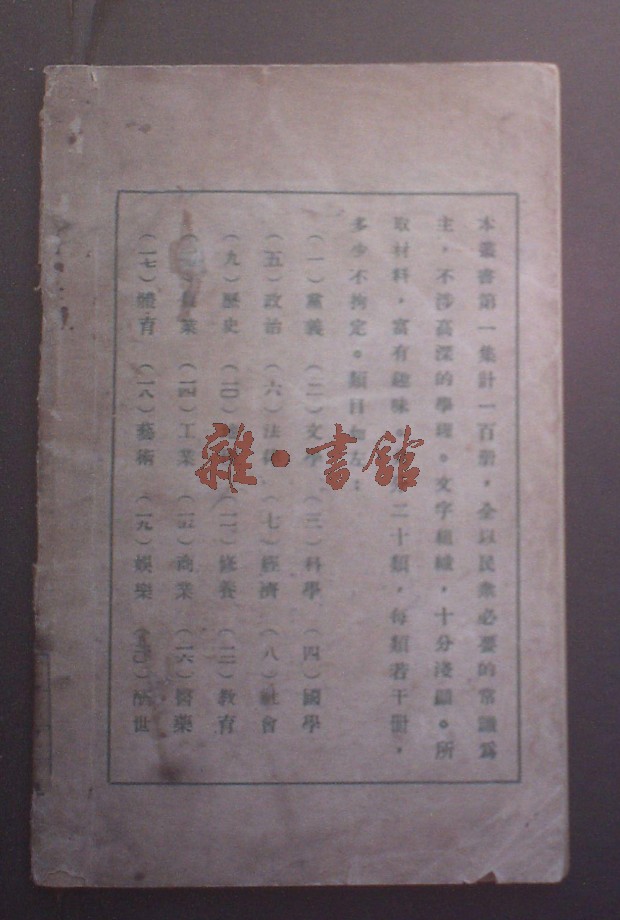 本叢書第一集計一百册，全以民衆必要的常識爲
主，不涉高深的學理。文字組織，十分淺顯。所
取材料，富有趣味。二十類，每類若干册，
多少不拘定。類目如左：
（一）黨義　（二）文學　（三）科學　（四）國學
（五）政治　（六）法　（七）經濟　（八）社會
（九）歷史　（一〇）　（一一）修養　（一二）教育
（一三）業　（一四）工業　（一五）商業　（一六）醫藥
（一七）體育　（一八）藝術　（一九）娛樂　（二〇）世
雜·書館